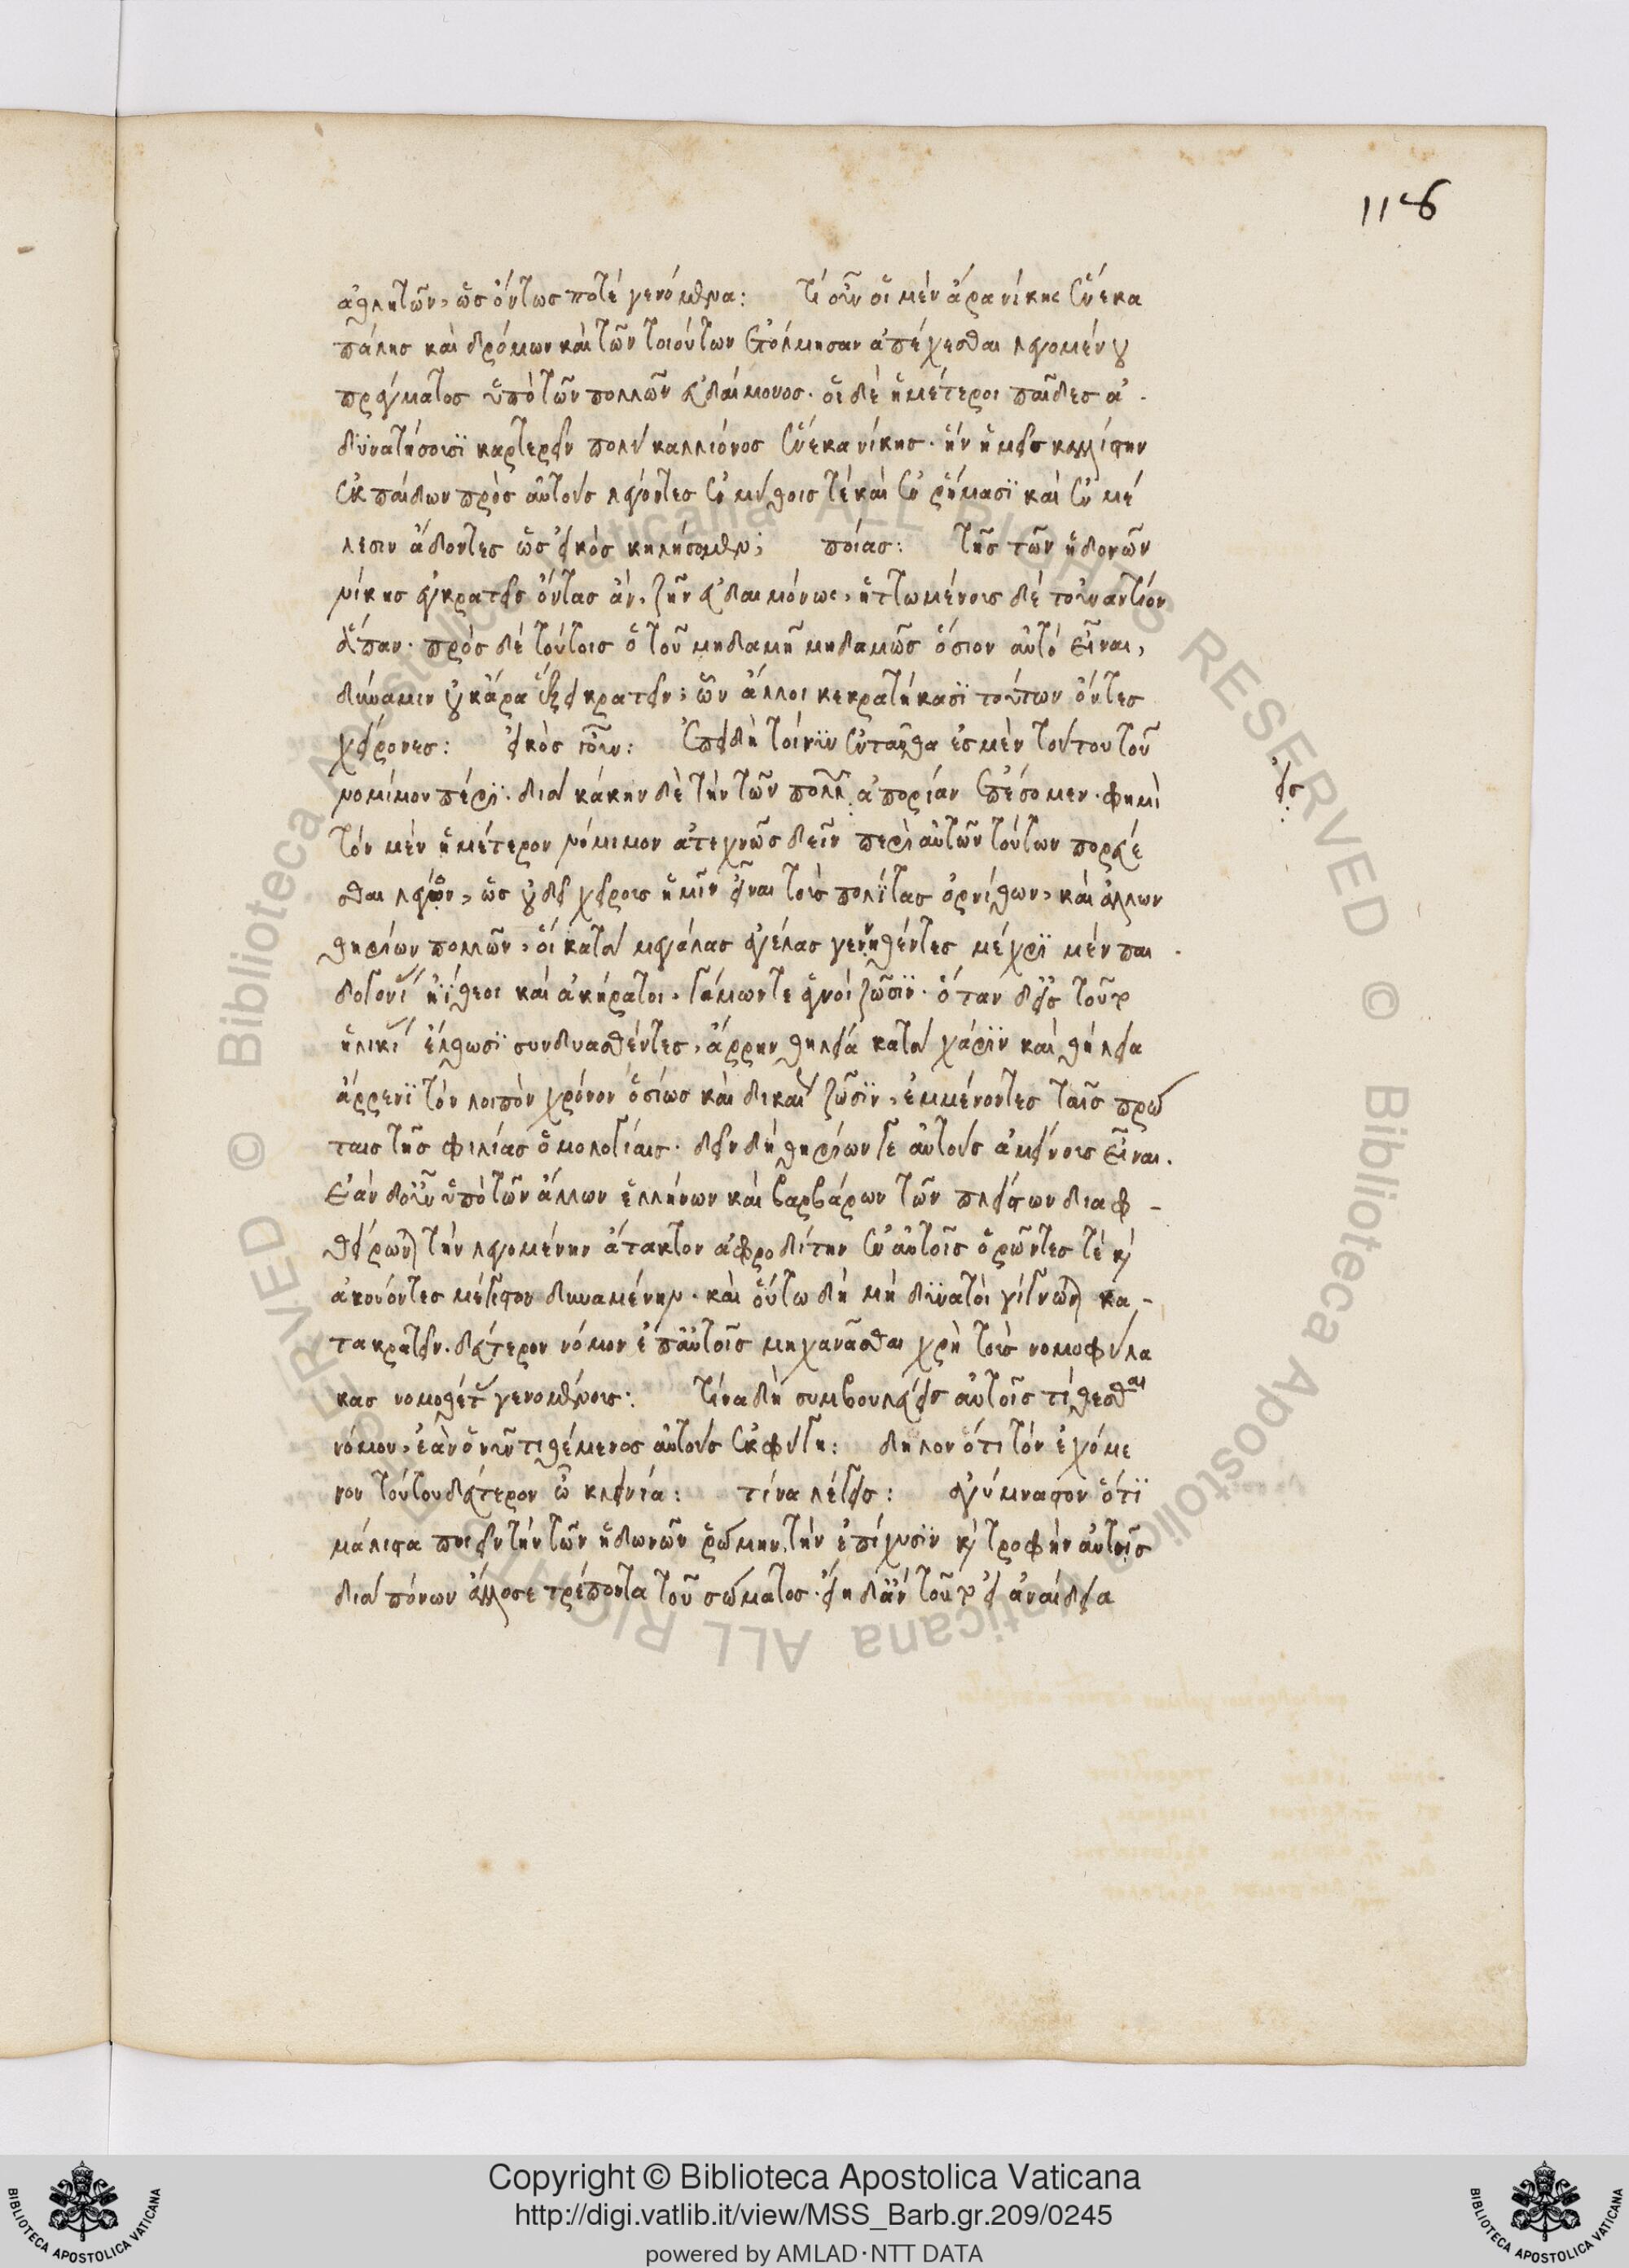 116
ἀθλητῶν, ὡς ὄντως ποτὲ γενόμενα: Τί οὖν οἱ μὲν ἄρα νίκης ἕνεκα
πάλης καὶ δρόμων καὶ τῶν τοιούτων ἐτόλμησαν ἀπέχεσθαι λεγομένου
πράγματος ὑπὸ τῶν πολλῶν εὐδαίμονος. οἱ δὲ ἡμέτεροι παῖδες ἀ
δυνατήσουσϊ καρτερεῖν πολὺ καλλιόνος ἕνεκα νίκης. ἣν ἡμεῖς καλλίστην
ἐκ παίδων πρὸς αὐτοὺς λέγοντες ἐν μύθοις τὲ καὶ ἐν ῥήμασϊ καὶ ἐν μέ
λεσιν ἄδοντες ὡς εἰκὸς κηλήσομεν; ποίας: τῆς τῶν ἡδονῶν
νίκης ἐγκρατεῖς ὄντας ἂν, ζῆν εὐδαιμόνως, ἡττωμένους δὲ τοὐναντίον
ἅπαν. πρὸς δὲ τούτοις ὁ τοῦ μηδαμῆ μηδαμῶς ὅσιον αὐτὸ εἶναι,
δύναμιν οὐκ ἄρα ἕξει κρατεῖν; ὧν ἄλλοι κεκρατήκασϊ τούτων ὄντες
χείρονες: εἰκὸς γοῦν: Ἐπειδὴ τοίνϋν ἐνταῦθα ἐσμὲν τούτου τοῦ
νομίμου πέρϊ. διὰ κάκην δὲ τὴν τῶν πολλῶν ἀπορίαν ἐπέσομεν. φημὶ
εἰς
τὸν μὲν ἡμέτερον νόμιμον ἀτεχνῶς δεῖν περὶ αὐτῶν τούτων πορεύε
σθαι λέγων, ὡς οὐ δεῖ χείρους ἡμῖν εἶναι τοὺς πολίτας ὀρνίθων, καὶ ἄλλων
θηρίων πολλῶν, οἳ κατὰ μεγάλας ἀγέλας γεννηθέντες μέχρϊ μὲν παι
δογονί ἠΐθεοι καὶ ἀκήρατοι, γάμων τε ἁγνοὶ ζῶσϊν. ὅταν δ' εἰς τοῦτο
ἡλικί ἔλθωσϊ συνδυασθέντες, ἄρρην θηλείᾳ κατὰ χάρϊν καὶ θήλεια
ἄρρενϊ τὸν λοιπὸν χρόνον ὁσίως καὶ δικαί ζῶσϊν, ἐμμένοντες ταῖς πρώ
ταις τῆς φιλίας ὁμολογίαις. δεῖν δὴ θηρίων γε αὐτοὺς ἀμείνους εἶναι.
Ἐὰν δ' οὖν ὑπὸ τῶν ἄλλων ἑλλήνων καὶ βαρβάρων τῶν πλείστων διαφ
θείρωνται τὴν λεγομένην ἄτακτον ἀφροδίτην ἐν αὐτοῖς ὁρῶντες τὲ καὶ
ἀκούοντες μέγιστον δυναμένην. καὶ οὕτω δὴ μὴ δϋνατοὶ γίγνωνται κα
τακρατεῖν. δεύτερον νόμον ἐπ' αὐτοῖς μηχανᾶσθαι χρὴ τοὺς νομοφύλα
κας νομοθέτ γενομένους: Τίνα δὴ συμβουλεύεις αὐτοῖς τίθεσθαι
νόμον, ἐὰν ὁ νῦν τιθέμενος αὐτοὺς ἐκφύγη: δῆλον ὅτι τὸν ἐχόμε
νον τούτου δεύτερον ὦ κλεινία: τίνα λέγεις: ἀγύμναστον ὅτϊ
μάλιστα ποιεῖν τὴν τῶν ἡδωνῶν ῥώμην, τὴν ἐπίχυσϊν καὶ τροφὴν αὐτοῖς
διὰ πόνων ἄλλοσε τρέποντα τοῦ σώματος. εἴη δ' ἂν τοῦτο εἰ ἀναίδεια
Copyright © Biblioteca Apostolica Vaticana
http://digi.vatlib.it/view/MSS_Barb.gr.209/0245
powered by AMLAD·NTT DATA
BIBLIOTECA APOSTOLICA VATICANA
BIBLIOTECA APOSTOLICA VATICANA